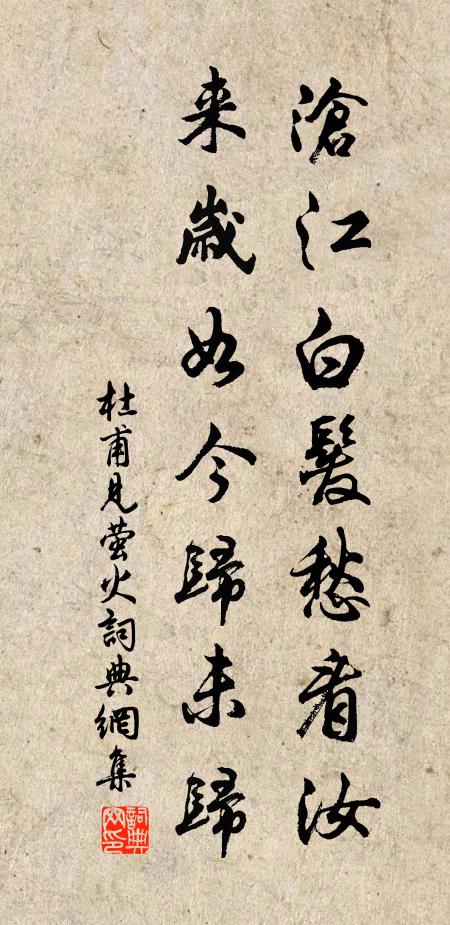 滄江白髮愁看汝
来歲如今歸未歸
杜甫見螢火詞典網集
詞典网印